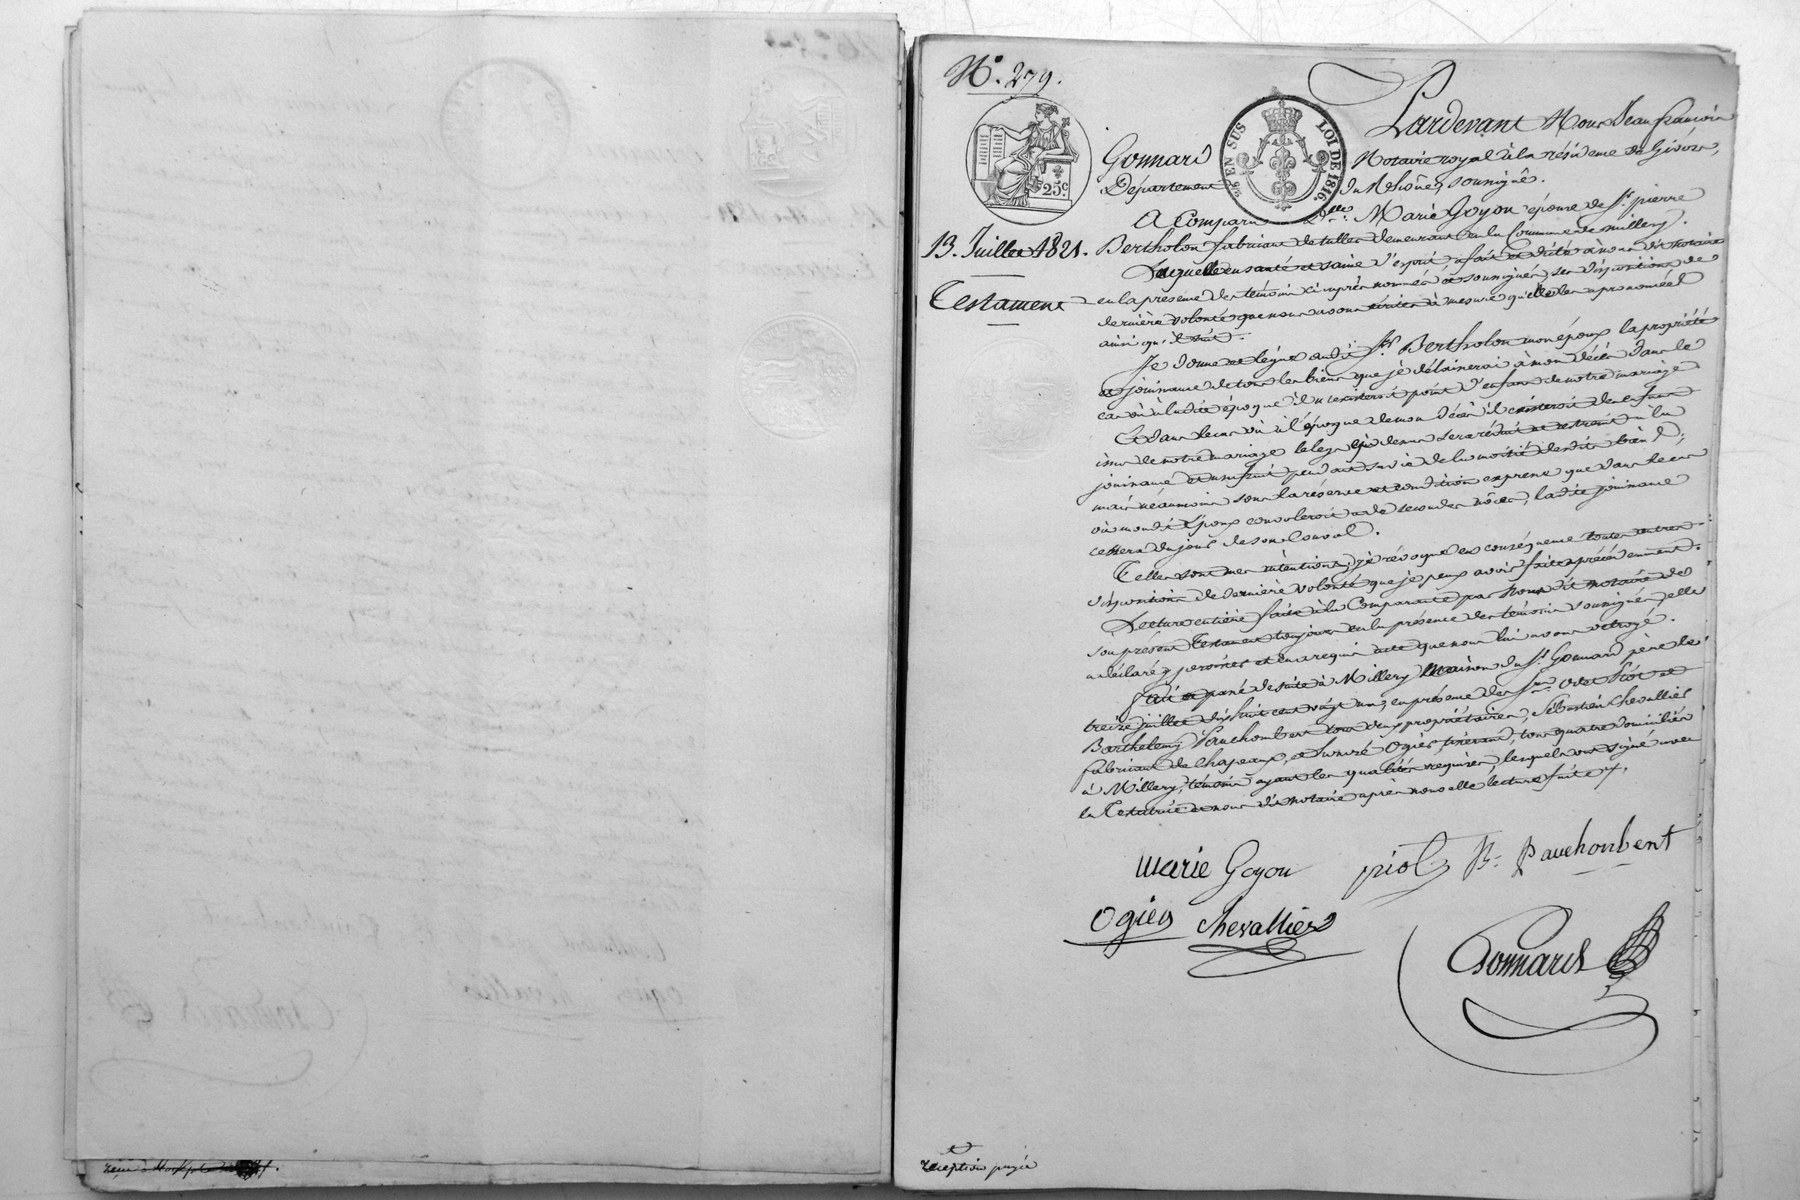 N.° 279.
Pardevant Nous Jean françois
Gonnard Notaire royal à la résidence de Givors,
Département du Rhône, soussigné.
25 c
25 C EN SUS LOI DE 1816.
A Comparu D.lle Marie Goyon épouse de S.r pierre
13. Juillet 1821. Bertholon fabricant de tulles demeurant en la Commune de millery.
Laquelle en santé et saine d'esprit a fait et dicté à nous dit notaire
Testament en la présence des témoins ci après nommés et soussignés, ses dispositions de
dernière volonté que nous avons écrites à mesure qu'elle les a prononcées
ainsi qu'il suit.
Je donne et lègue audit S.r Bertholon mon époux la propriété
et jouissance de tous les biens que je délaisserai à mon décès dans le
cas où à la dite époque il n'existerait point d'enfans de notre mariage
Et dans le cas où à l'époque de mon décès il existeroit des enfans
issus de notre mariage le legs ci dessus sera réduit et restraint à la
jouissance et usufruit pendant sa vie de la moitié des dits biens,
mais néanmoins sous la réserve et condition expresse que dans le cas
où mon dit Époux convoleroit à de secondes nôces, la dite jouissance
cessera du jour de son Convol.
Telles sont mes intentions, je révoque en conséquence toutes autres
dispositions de dernière volonté que je peux avoir faites précédemment.
Lecture entière faite à la Comparante par Nous dit notaire de
son présent Testament toujours en la présence des témoins soussignés, elle
a déclaré y persister et en a requis acte que nous lui avons octroyé.
fait et passé de suite à Millery maison du S.r Gonnard père le
treize juillet dix huit cent vingt un, en présence des S.rs Odet Piot et
Barthelemy Pauchonbent tous deux propriétaires, Sébastien Chevallier
fabricant de Chapeaux, et Ogier, tous quatre domiciliés
à Millery, témoins ayant les qualités requises, lesquels ont signé avec
la Testatrice et nous dit notaire après nouvelle lecture faite.
Marie Goyon piot B. Pauchonbent
Ogier Chevallier
Gonnard